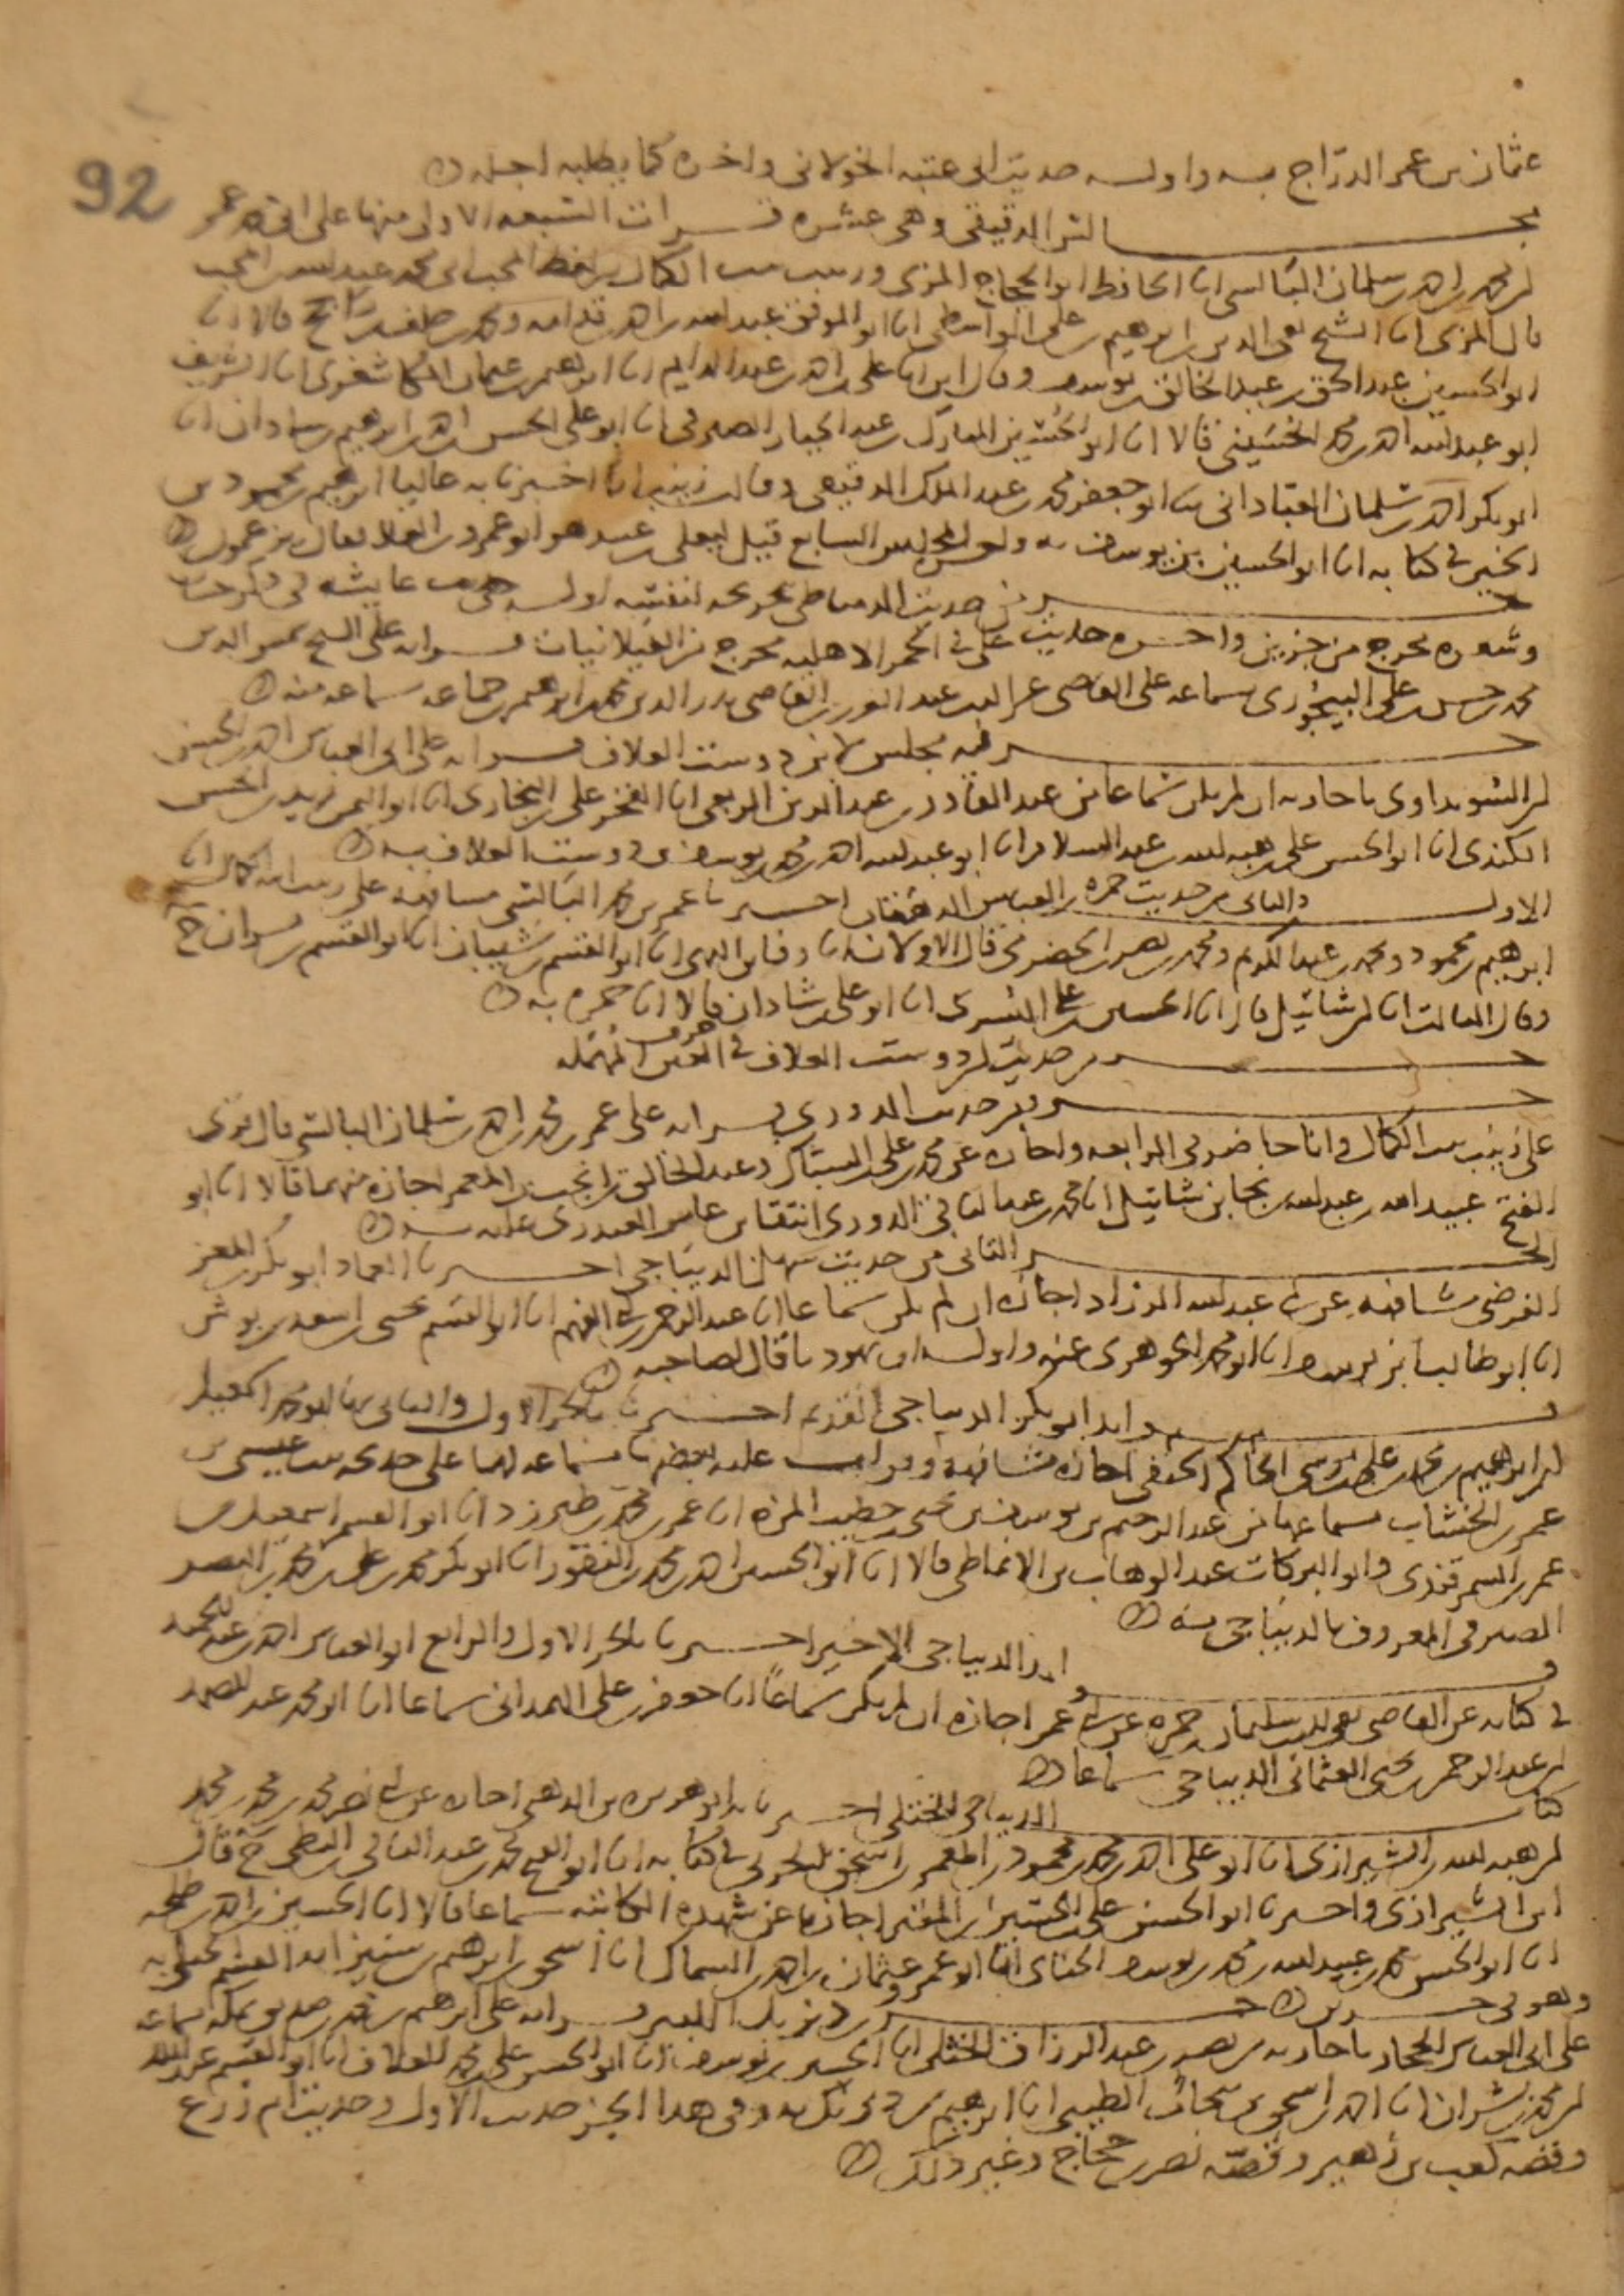 92
عثمان بن عمر الدراج به واوله حديث ابى عتبه الخولانى واخره كما يطلبه اجله
الدقيقى وهى عشره قرات التسعه الاولى منها على ابى حفص عمر
ابن محمد بن احمد بن سلمان البالسى انا الحافظ ابو الحجاج المزى وزينب بنت الكمال
قال المزى انا الشيخ تقى الدين ابرهيم بن على الواسطى انا الموفق عبد الله بن احمد بن قدامه ومحمد بن خلف بن راجح قالا انا
ابو الحسين عبد الحق بن عبد الخالق بن يوسف وقال ايضا انا على بن احمد بن عبد الدايم انا ابرهيم بن عثمان الكاشغرى انا الشريف
ابو عبد الله احمد بن محمد الحسينى قالا انا ابو الحسين المبارك بن عبد الجبار الصيرفى انا ابو على الحسن بن احمد بن ابرهيم بن شاذان انا
ابو بكر احمد بن سلمان العبادانى ثنا ابو جعفر محمد بن عبد الملك الدقيقى وقالت زينب انا اخبرنا به عاليا ابرهيم بن محمود بن
الخير فى كتابه انا ابو الحسين بن يوسف به
من حديث الدمياطى تخريجه لنفسه اوله حديث عايشه فى
وشعره مخرج من جزين واخره حديث على فى الحمر الاهليه مخرج من الغيلانيات قراته على الشيخ شمس الدين
محمد بن حسن بن على البيجورى بسماعه على القاضى عز الدين عبد العزيز بن القاضى بدر الدين محمد بن ابرهيم بن جماعه بسماعه منه
فيه مجلس لابن دوست العلاف قراته على ابى العباس احمد بن الحسن
ابن السويداوى باجازته ان لم يكن سماعا من عبد القادر بن عبد العزيز انا الفخر على بن البخارى انا ابو اليمن زيد بن الحسن
الكندى انا ابو الحسن على بن هبه الله بن عبد السلام انا ابو عبد الله احمد بن محمد بن يوسف بن دوست العلاف به
الاول والثانى من حديث حمزه بن العباس الدهقان اخبرنا عمر بن محمد البالسى مشافهه على زينب ابنه الكمال انا
ابرهيم بن محمود ومحمد بن عبد الكريم ومحمد بن نصر بن الحضرمى قال الاولان انا وفا بن البهى انا ابو القسم بن بيان انا ابو القسم بن بشران ح
وقال الثالث انا ابن شاتيل قال انا الحسين بن على بن البسرى انا ابو على بن شاذان قالا انا حمزه به
حديث ابن دوست العلاف فى حرف العين المهمله
حديث الدورى قراته على عمر بن محمد بن احمد بن سلمان البالسى قال قرى
على زينب بنت الكمال وانا حاضر فى الرابعه واجازه عن محمد بن على بن السباك وعبد الخالق بن انجب بن المعمر اجازه منهما قالا انا ابو
الفتح عبيد الله بن عبد الله بن نجا بن شاتيل انا محمد بن عبد الباقى الدورى انتقا بن عامر العبدرى عليه به
الجز الثانى من حديث سهل الديباجى اخبرنا العماد ابو بكر بن المعز
الفرضى مشافهه عن ابى عبد الله الزراد اجازه ان لم يكن سماعا انا عبد الرحمن بن ابى الفهم انا ابو القسم يحيى بن اسعد بن بوش
انا ابو طالب بن يوسف انا ابو محمد الجوهرى عنه واوله ان يهوديا قال لصاحبه
فوايد ابى بكر الديباجى القديم اخبرنا بالجز الاول والثانى منها ابو محمد اسمعيل
ابن ابرهيم بن محمد بن على بن موسى الحاكم الحنفى اجازه مشافهه وقرات عليه بعضها بسماعه لهما على خديجه بنت عيسى بن
عمر بن الخشاب بسماعها من عبد الرحيم بن يوسف بن يحيى خطيب المزه انا عمر بن محمد بن طبرزد انا ابو القسم اسمعيل بن
عمر بن السمرقندى وابو البركات عبد الوهاب بن الانماطى قالا انا ابو الحسين احمد بن محمد بن النقور انا ابو بكر محمد بن على بن محمد بن النضر
الصيرفى المعروف بالديباجى به
فوايد الديباجى الاخير اخبرنا بالجز الاول والرابع ابو العباس احمد بن عبد الحميد
فى كتابه عن القاضى تقى الدين سليمان بن حمزه عن ابى عمر اجازه ان لم يكن سماعا انا جعفر بن على الهمدانى سماعا انا ابو محمد عبد الله
بن عبد الرحمن بن يحيى العثمانى الديباجى سماعا
كتاب الديباج للختلى اخبرنا به ابو هريره بن الذهبى اجازه عن ابى نصر محمد بن محمد بن محمد
ابن هبه الله بن الشيرازى انا ابو على احمد بن محمد بن محمود بن المعمر بن اسحق الحرانى فى كتابه انا ابو الفتح محمد بن عبد الباقى بن البطى ح قال
ابن الشيرازى واخبرنا ابو الحسن على بن الحسين بن المقير اجازه عن شهده الكاتبه سماعا قالا انا الحسين بن احمد بن طلحه
انا ابو الحسن محمد بن عبيد الله بن محمد بن يوسف الحنائى انا ابو عمرو عثمان بن احمد بن السماك انا اسحق بن ابرهيم بن سنين ابو القسم الختلى به
وهو فى جزين جز ديزيل الكبير قراته على ابرهيم بن محمد بن صديق بمكه بسماعه
على ابى العباس الحجار باجازته من نصر بن عبد الرزاق الحنبلى انا ابو الحسين بن يوسف انا ابو الحسن على بن محمد العلاف انا ابو القسم عبد الملك
ابن محمد بن بشران انا احمد بن اسحق بن نيخاب الطيبى انا ابرهيم بن ديزيل به وفى هذا الجز حديث الاول وحديث ام زرع
وقصه كعب بن زهير وقصه نصر بن حجاج وغير ذلك